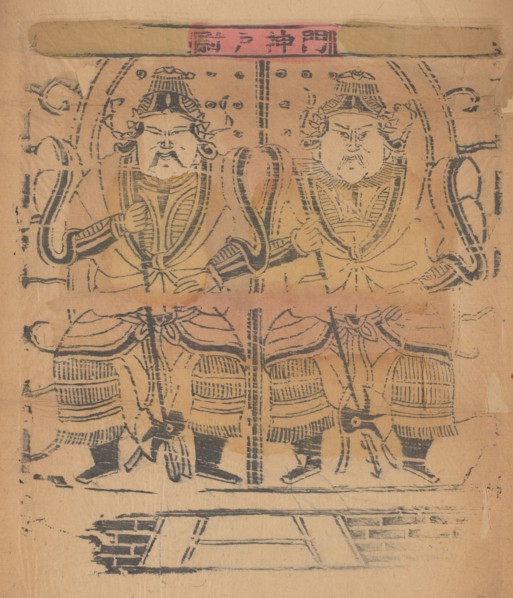 門神户尉